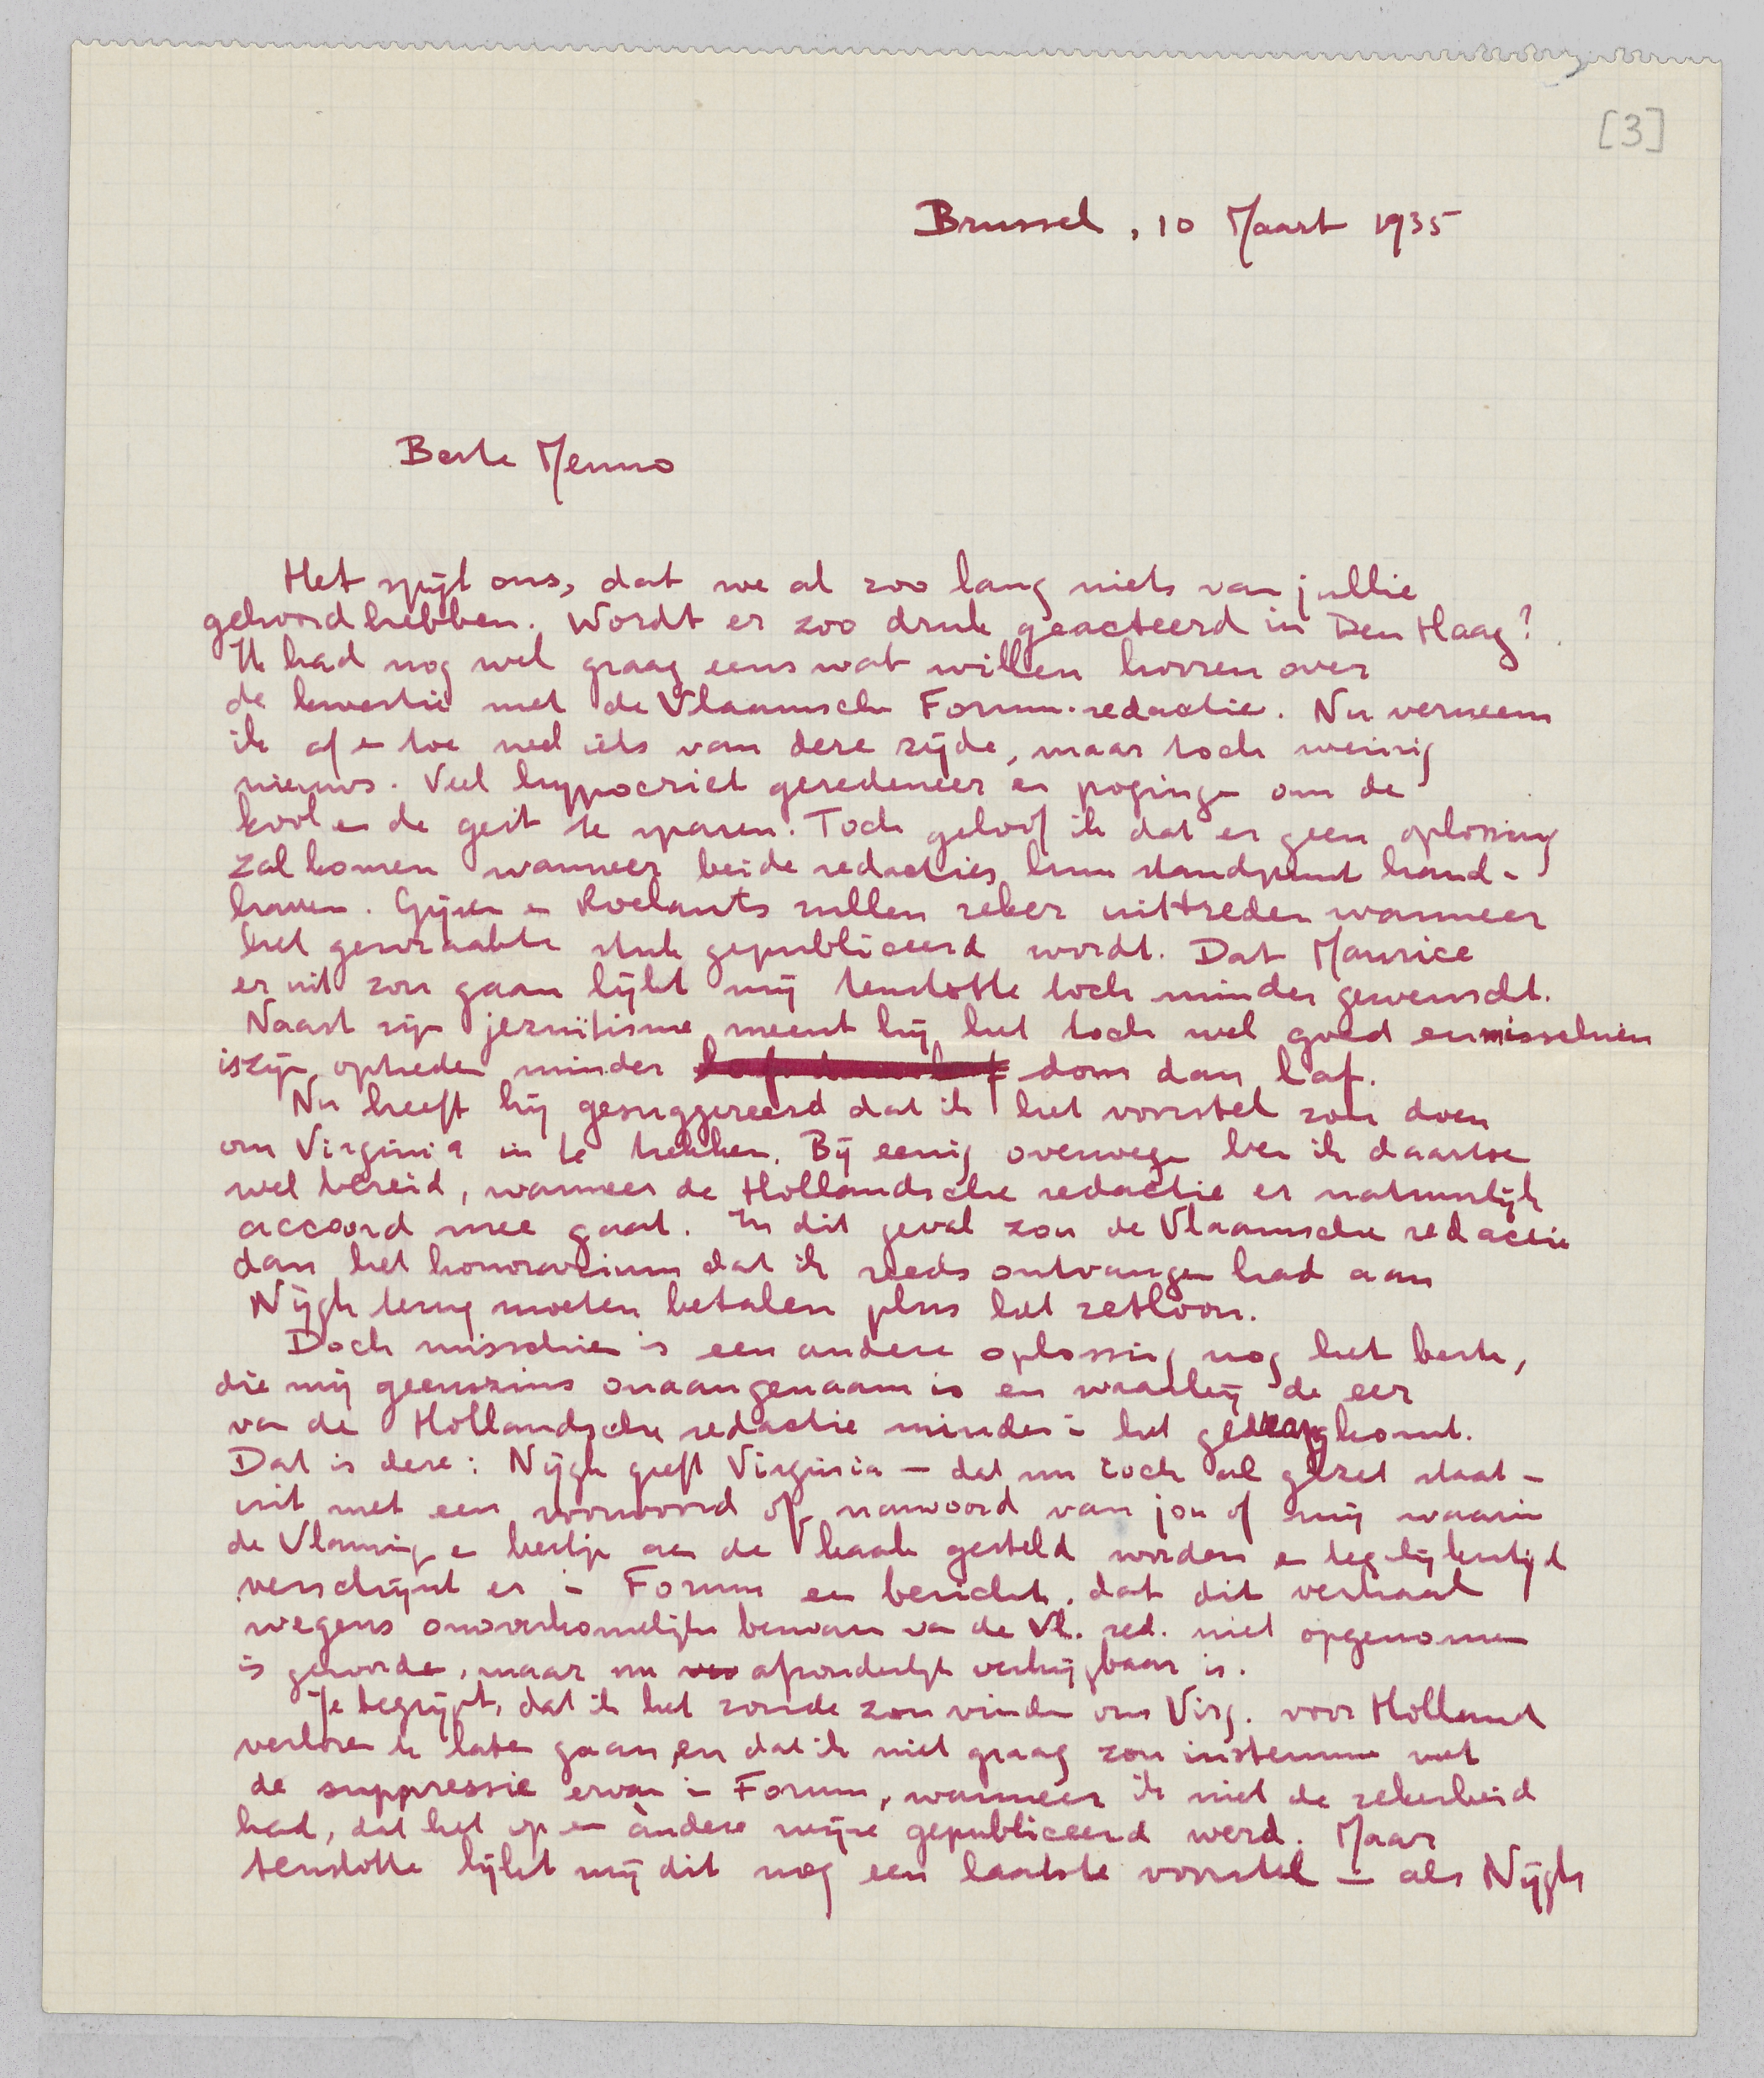 [3]
Brussel, 10 Maart 1935
Beste Menno
Het spijt ons, dat we al zoo lang niets van jullie
gehoord hebben. Wordt er zoo druk geacteerd in Den Haag?
Ik had nog wel graag eens wat willen hooren over
de kwestie met de Vlaamsche Forum-redactie. Nu verneem
ik af en toe wel iets van deze zijde, maar toch weinig
nieuws. Veel hypocriet geredeneer en pogingen om de
kool en de geit te sparen. Toch geloof ik dat er geen oplossing
zal komen wanneer beide redacties hun standpunt hand-
haven. Gijsen en Roelants zullen zeker uittreden wanneer
het gewraakte stuk gepubliceerd wordt. Dat Maurice
er uit zou gaan lijkt mij tenslotte toch minder gewenscht.
Naast zijn jezuïtisme meent hij het toch wel goed en misschien
is zijn optreden minder dom dan laf.
Nu heeft hij gesuggereerd dat ik het voorstel zou doen
om Virginia in te trekken. Bij eenig overwegen ben ik daartoe
wel bereid, wanneer de Hollandsche redactie er natuurlijk
accoord mee gaat. In dit geval zou de Vlaamsche redactie
dan het honorarium dat ik reeds ontvangen had aan
Nijgh terug moeten betalen plus het zetloon.
Doch misschien is een andere oplossing nog het beste,
die mij geenszins onaangenaam is en waarbij de eer
van de Hollandsche redactie minder in het gedrang komt.
Dat is deze: Nijgh geeft Virginia — dat nu toch al gezet staat —
uit met een voorwoord of nawoord van jou of mij waarin
de Vlamingen eventjes aan de kaak gesteld worden en tegelijkertijd
verschijnt er in Forum een bericht, dat dit verhaal
wegens onoverkomelijke bezwaren van de Vl. red. niet opgenomen
is geworden, maar nu afzonderlijk verkrijgbaar is.
Je begrijpt, dat ik het zonde zou vinden om Virg. voor Holland
verloren te laten gaan, en dat ik niet graag zou instemmen met
de suppressie ervan in Forum, wanneer ik niet de zekerheid
had, dat het op een àndere wijze gepubliceerd werd. Maar
tenslotte lijkt mij dit nog een laatste voorstel — als Nijgh